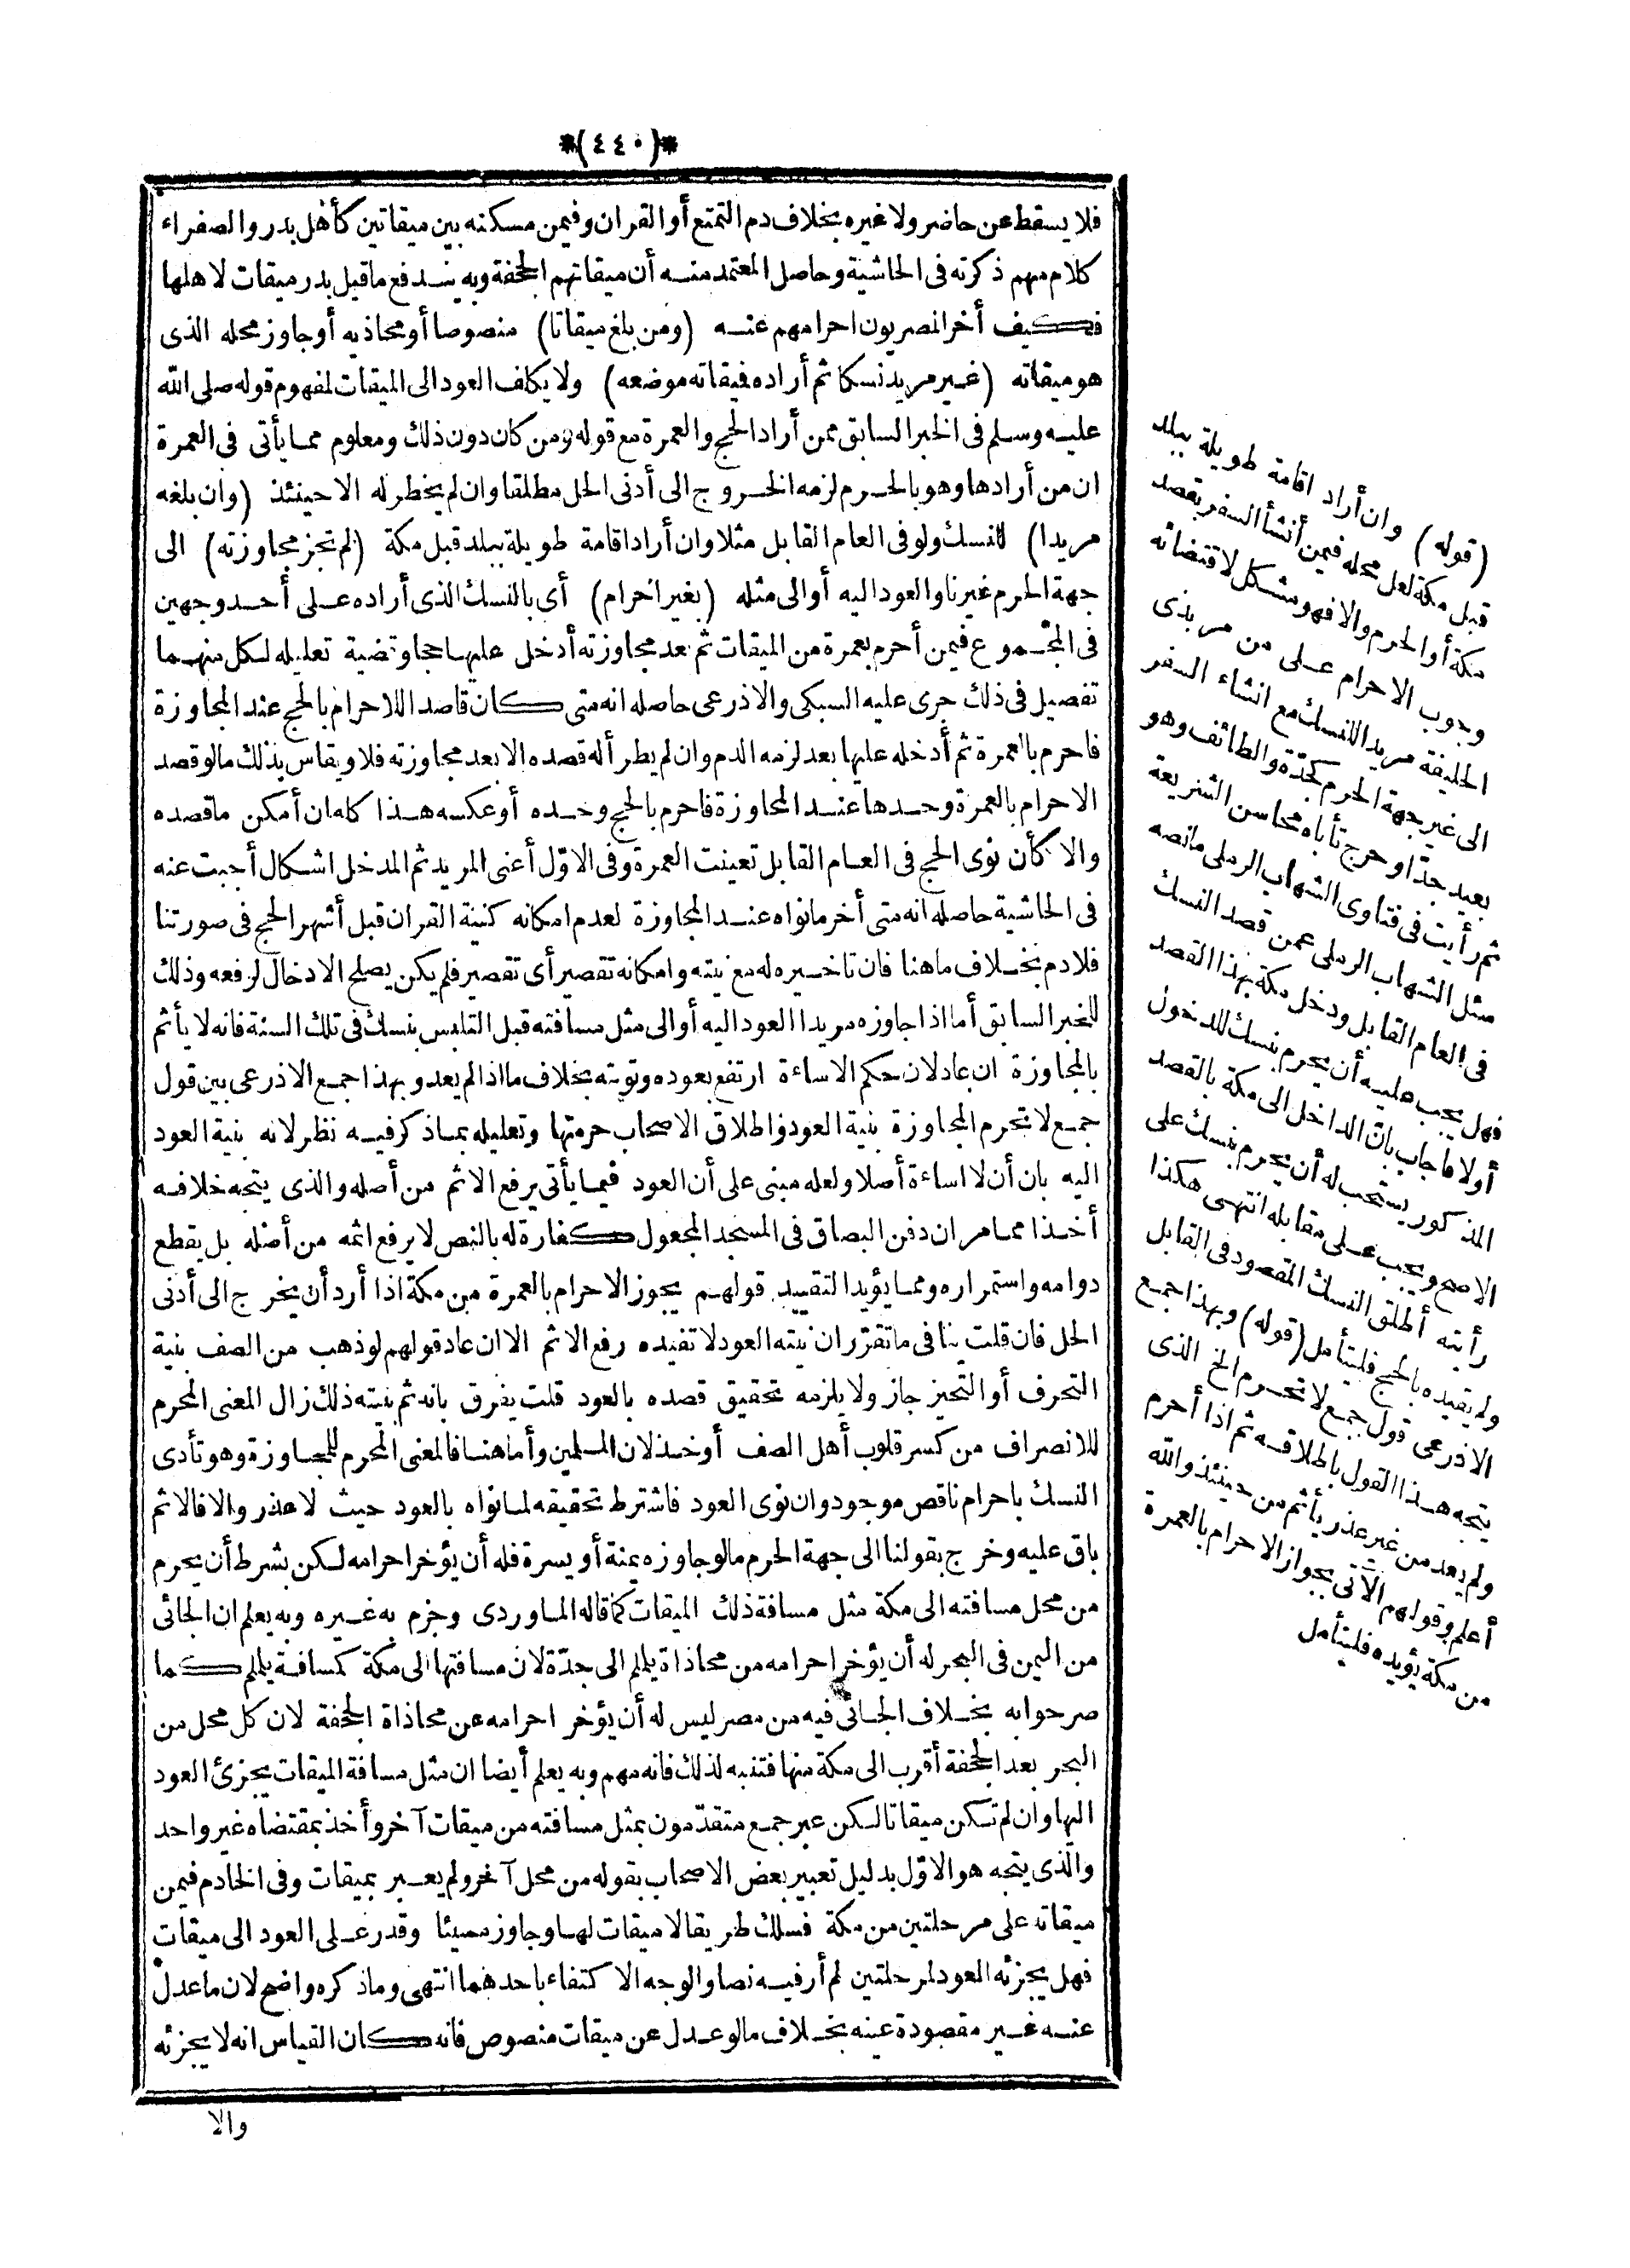 *(٤٤٠)*
فلا يسقط عن حاضر ولا غيره بخلاف دم التمتع أو القران وفيمن مسكنه بين ميقاتين كأهل بدر والصفراء
كلام مهم ذكرته فى الحاشية وحاصل المعتمد منه أن ميقاتهم الجحفة وبه يندفع ما قيل بدر ميقات لاهلها
فكيف أخر المصريون احرامهم عنه (ومن بلغ ميقاتا) منصوصا أو محاذيه أو جاوز محله الذى
هو ميقاته (غير مريد نسكا ثم أراده فميقاته موضعه) ولا يكلف العود الى الميقات لمفهوم قوله صلى الله
عليه وسلم فى الخبر السابق ممن أراد الحج والعمرة مع قوله ومن كان دون ذلك ومعلوم مما يأتى فى العمرة
ان من أرادها وهو بالحرم لزمه الخروج الى أدنى الحل مطلقا وان لم يخطر له الا حينئذ (وان بلغه
مريدا) للنسك ولو فى العام القابل مثلا وان أراد اقامة طويلة ببلد قبل مكة (لم تجز مجاوزته) الى
جهة الحرم غير ناو العود اليه أو الى مثله (بغير احرام) أى بالنسك الذى أراده على أحد وجهين
فى المجموع فيمن أحرم بعمرة من الميقات ثم بعد مجاوزته أدخل عليها حجا وقضية تعليله لكل منهما
تفصيل فى ذلك جرى عليه السبكى والاذرعى حاصله انه متى كان قاصدا للاحرام بالحج عند المجاوزة
فاحرم بالعمرة ثم أدخله عليها بعد لزمه الدم وان لم يطرأ له قصده الا بعد مجاوزته فلا ويقاس بذلك ما لو قصد
الاحرام بالعمرة وحدها عند المجاوزة فاحرم بالحج وحده أو عكسه هذا كله ان أمكن ما قصده
والا كأن نوى الحج فى العام القابل تعينت العمرة وفى الاوّل أعنى المريد ثم المدخل اشكال أجبت عنه
فى الحاشية حاصله انه متى أخر ما نواه عند المجاوزة لعدم امكانه كنية القران قبل أشهر الحج فى صورتنا
فلا دم بخلاف ما هنا فان تاخيره له مع نيته وامكانه تقصير أى تقصير فلم يكن يصلح الادخال لرفعه وذلك
للخبر السابق أما اذا جاوزه مريدا العود اليه أو الى مثل مسافته قبل التلبس بنسك فى تلك السنة فانه لا يأثم
بالمجاوزة ان عاد لان حكم الاساءة ارتفع بعوده وتوبته بخلاف ما اذا لم يعد وبهذا جمع الاذرعى بين قول
جمع لا تحرم المجاوزة بنية العود واطلاق الاصحاب حرمتها وتعليله بما ذكر فيه نظر لانه بنية العود
اليه بان أن لا اساءة أصلا ولعله مبنى على أن العود فيما يأتى يرفع الاثم من أصله والذى يتجه خلافه
أخذا مما مر ان دفن البصاق فى المسجد المجعول كفارة له بالنص لا يرفع اثمه من أصله بل يقطع
دوامه واستمراره ومما يؤيد التقييد قولهم يجوز الاحرام بالعمرة من مكة اذا أرد أن يخرج الى أدنى
الحل فان قلت ينافى ما تقرّر ان نيته العود لا تفيده رفع الاثم الا ان عاد قولهم لو ذهب من الصف بنية
التحرف أو التحيز جاز ولا يلزمه تحقيق قصده بالعود قلت يفرق بانه ثم بنيته ذلك زال المعنى المحرم
للانصراف من كسر قلوب أهل الصف أو خذلان المسلمين وأما هنا فالمعنى المحرم للمجاوزة وهو تأدى
النسك باحرام ناقص موجود وان نوى العود فاشترط تحقيقه لما نواه بالعود حيث لا عذر والا فالاثم
باق عليه وخرج بقولنا الى جهة الحرم ما لو جاوزه يمنة أو يسرة فله أن يؤخر احرامه لكن بشرط أن يحرم
من محل مسافته الى مكة مثل مسافة ذلك الميقات كما قاله الماوردى وجزم به غيره وبه يعلم ان الجائى
من اليمن فى البحر له أن يؤخر احرامه من محاذاة يلملم الى جدّة لان مسافتها الى مكة كمسافة يلملم كما
صرحوا به بخلاف الجائى فيه من مصر ليس له أن يؤخر احرامه عن محاذاة الجحفة لان كل محل من
البحر بعد الجحفة أقرب الى مكة منها فتنبه لذلك فانه مهم وبه يعلم أيضا ان مثل مسافة الميقات يجزئ العود
اليها وان لم تكن ميقاتا لكن عبر جمع متقدّمون بمثل مسافته من ميقات آخر وأخذ بمقتضاه غير واحد
والذى يتجه هو الاوّل بدليل تعبير بعض الاصحاب بقوله من محل آخر ولم يعبر بميقات وفى الخادم فيمن
ميقاته على مرحلتين من مكة فسلك طريقا لا ميقات لها وجاوز مسيئا وقدر على العود الى ميقات
فهل يجزئه العود لمرحلتين لم أر فيه نصا والوجه الاكتفاء باحدهما انتهى وما ذكره واضح لان ما عدل
عنه غير مقصودة عينه بخلاف ما لو عدل عن ميقات منصوص فانه كان القياس انه لا يجزئه
والا
(قوله) وان أراد اقامة طويلة ببلد
قبل مكة لعل محله فيمن أنشأ السفر بقصد
مكة أو الحرم والا فهو مشكل لاقتضائه
وجوب الاحرام على من مر بذى
الحليفة مريدا للنسك مع انشاء السفر
الى غير جهة الحرم كجدّة والطائف وهو
بعيد جدّا وحرج تأباه محاسن الشريعة
ثم رأيت فى فتاوى الشهاب الرملى ما نصه
سئل الشهاب الرملى عمن قصد النسك
فى العام القابل ودخل مكة بهذا القصد
فهل يجب عليه أن يحرم بنسك للدخول
أولا فاجاب بانّ الداخل الى مكة بالقصد
المذكور يستحب له أن يحرم بنسك على
الاصح ويجب على مقابله انتهى هكذا
رأيته أطلق النسك المقصود فى القابل
ولم يقيده بالحج فليتأمل (قوله) وبهذا جمع
الاذرعى قول جمع لا تحرم الخ الذى
يتجه هذا القول باطلاقه ثم اذا أحرم
ولم يعد من غير عذر يأثم من حينئذ والله
أعلم وقولهم الآتى بجواز الاحرام بالعمرة
من مكة يؤيده فليتأمل